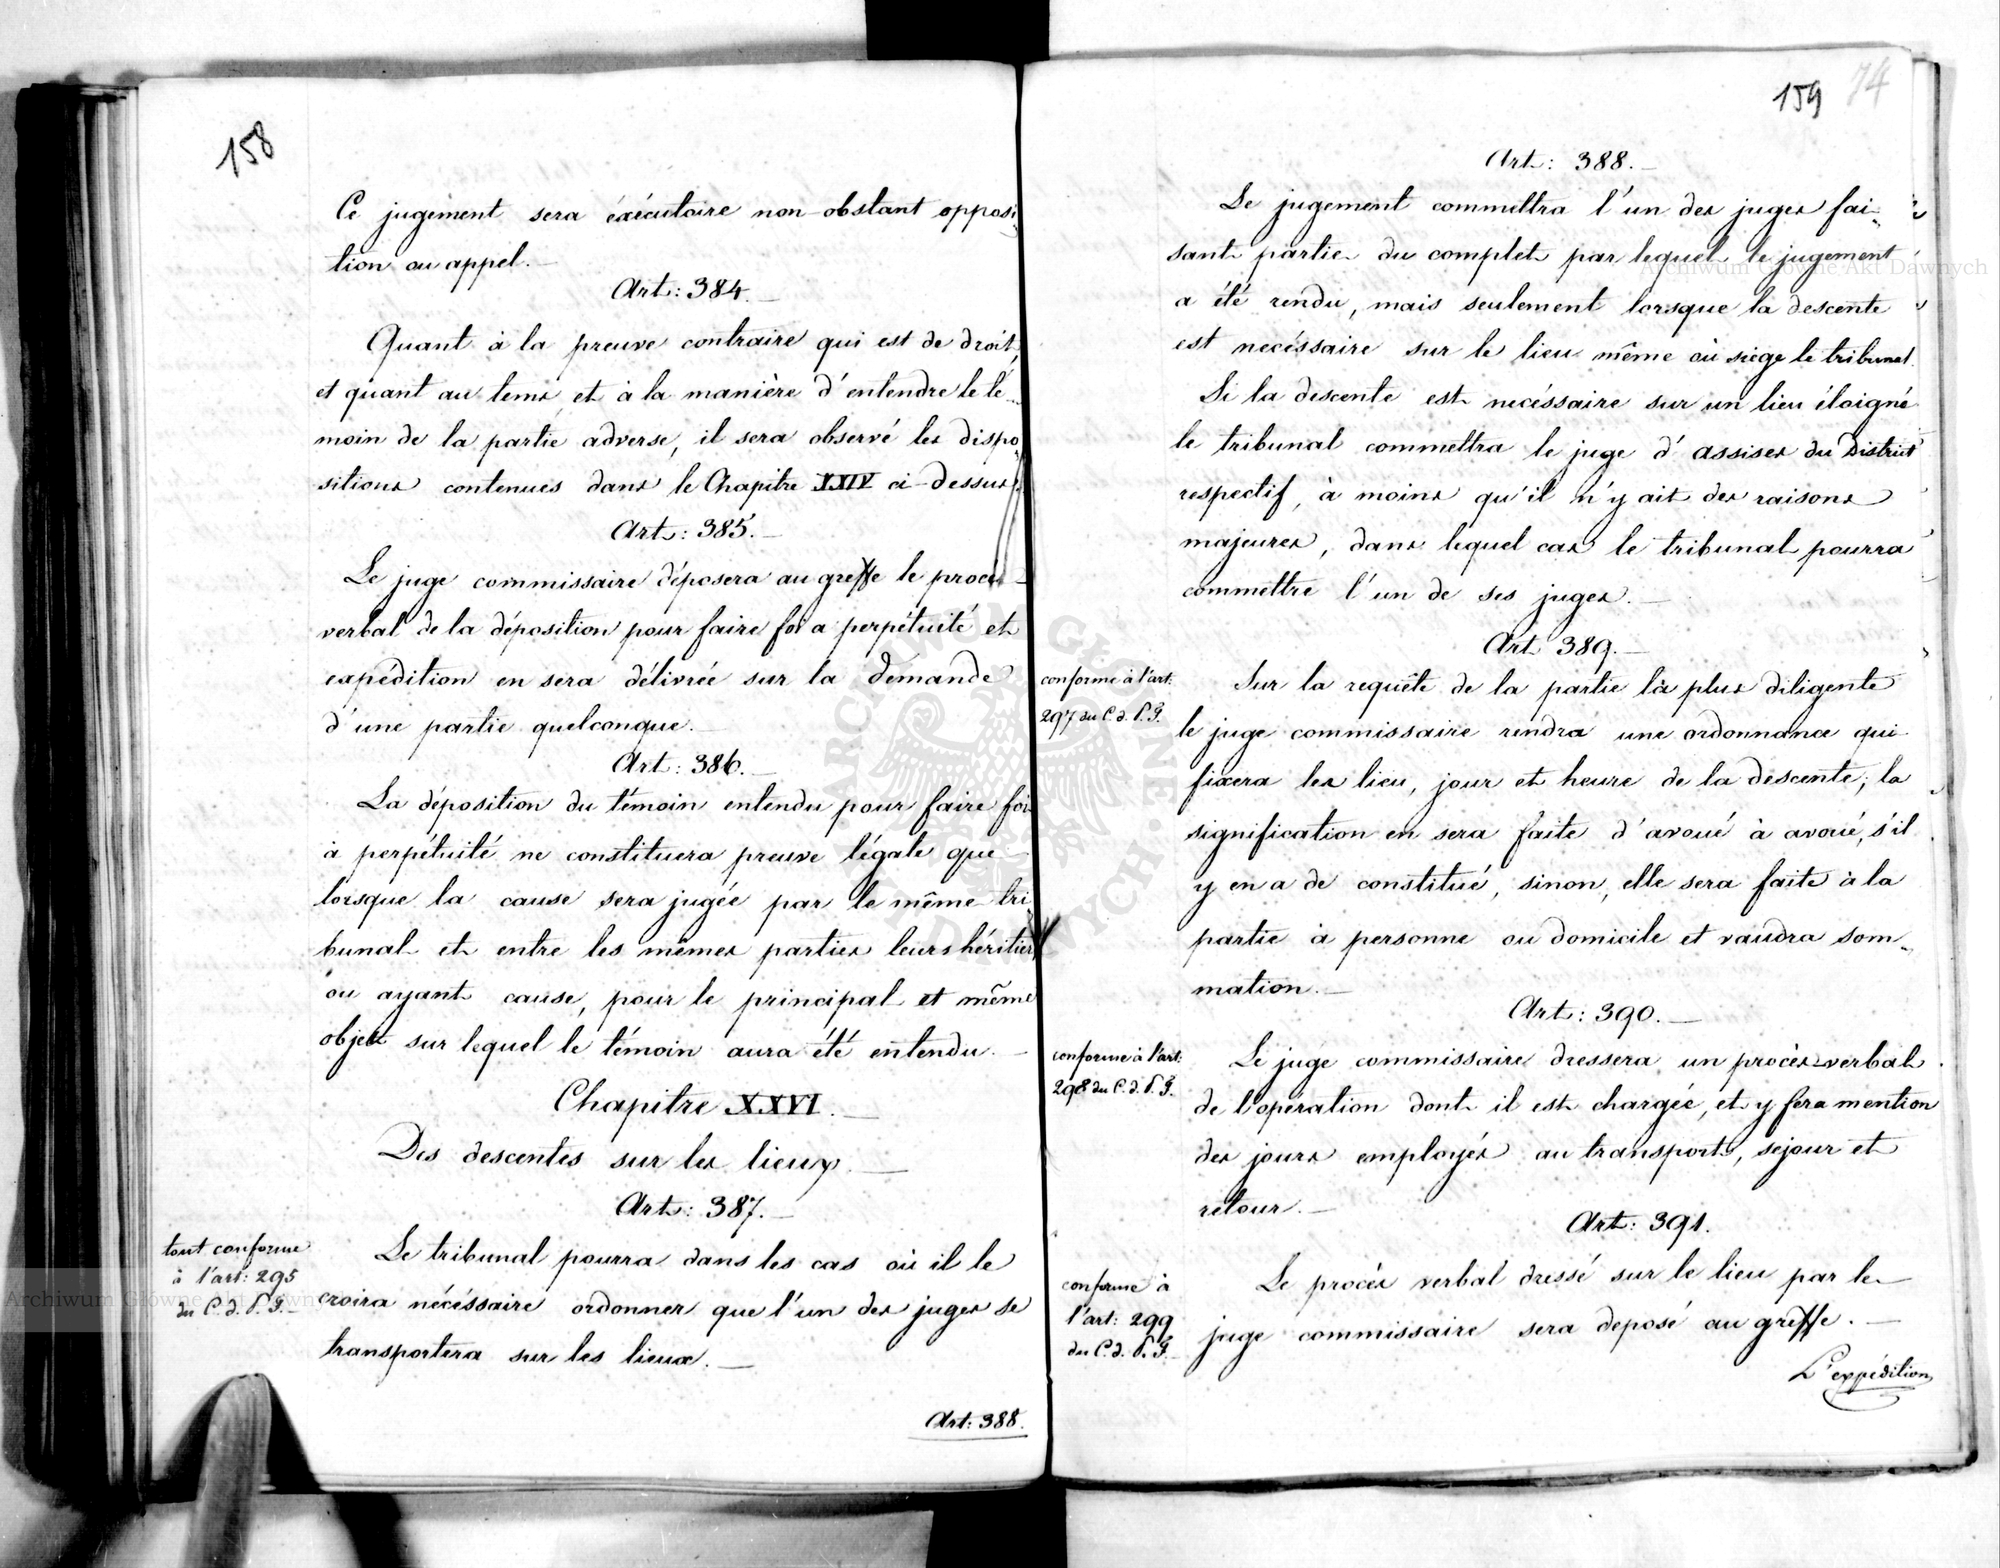 158
Ce jugement sera éxécutoire non obstant opposi-
tion ou appel.
Art: 384.
Quant à la preuve contraire qui est de droit,
et quant au tems et à la manière d'entendre le té-
moin de la partie adverse, il sera observé les dispo-
sitions contenues dans le Chapitre XXIV ci-dessus.
Art: 385.
Le juge commissaire déposera au greffe le procès-
verbal de la déposition pour faire foi a perpétuité et
expédition en sera délivrée sur la demande
d'une partie quelconque.
Art: 386.
La déposition du témoin entendu pour faire foi
à perpétuité ne constituera preuve légale que
lorsque la cause sera jugée par le même tri-
bunal et entre les mêmes parties leurs héritiers
ou ayant cause, pour le principal et même
objet sur lequel le témoin aura été entendu.
Chapitre XXVI.
Des descentes sur les lieux.
Art: 387.
tout conforme
à l'art: 295
du C. d. P. F.
Le tribunal pourra dans les cas où il le
croira nécéssaire ordonner que l'un des juges se
transportera sur les lieux.
Art: 388.
159 74
Art: 388.
Le jugement commettra l'un des juges fai-
sant partie du complet par lequel le jugement
a été rendu, mais seulement lorsque la descente
est necéssaire sur le lieu même où siège le tribunal.
Si la descente est necéssaire sur un lieu éloigné
le tribunal commettra le juge d'assises du District
respectif, à moins qu'il n'y ait des raisons
majeures, dans lequel cas le tribunal pourra
commettre l'un de ses juges.
Art 389.
conforme à l'art:
297 du C. d. P. F.
Sur la requête de la partie la plus diligente
le juge commissaire rendra une ordonnance qui
fixera les lieu, jour et heure de la descente; la
signification en sera faite d'avoué à avoué, s'il
y en a de constitué, sinon, elle sera faite à la
partie à personne ou domicile et vaudra som-
mation.
Art: 390.
conforme à l'art:
298 du C. d. P. F.
Le juge commissaire dressera un procès-verbal
de l'opération dont il est chargée, et y fera mention
des jours employés au transport, sejour et
retour.
Art: 391.
conforme à
l'art: 299
du C. d. P. F.
Le procès verbal dressé sur le lieu par le
juge commissaire sera deposé au greffe.
L'expédition
Archiwum Główne Akt Dawnych
Archiwum Główne Akt Dawnych
ARCHIWUM GŁÓWNE AKT DAWNYCH